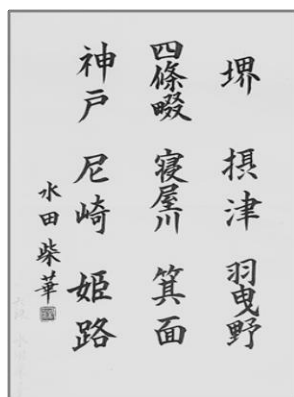 堺 摂津 羽曳野
四條畷 寝屋川 箕面
神戸 尼崎 姫路
水田柴華